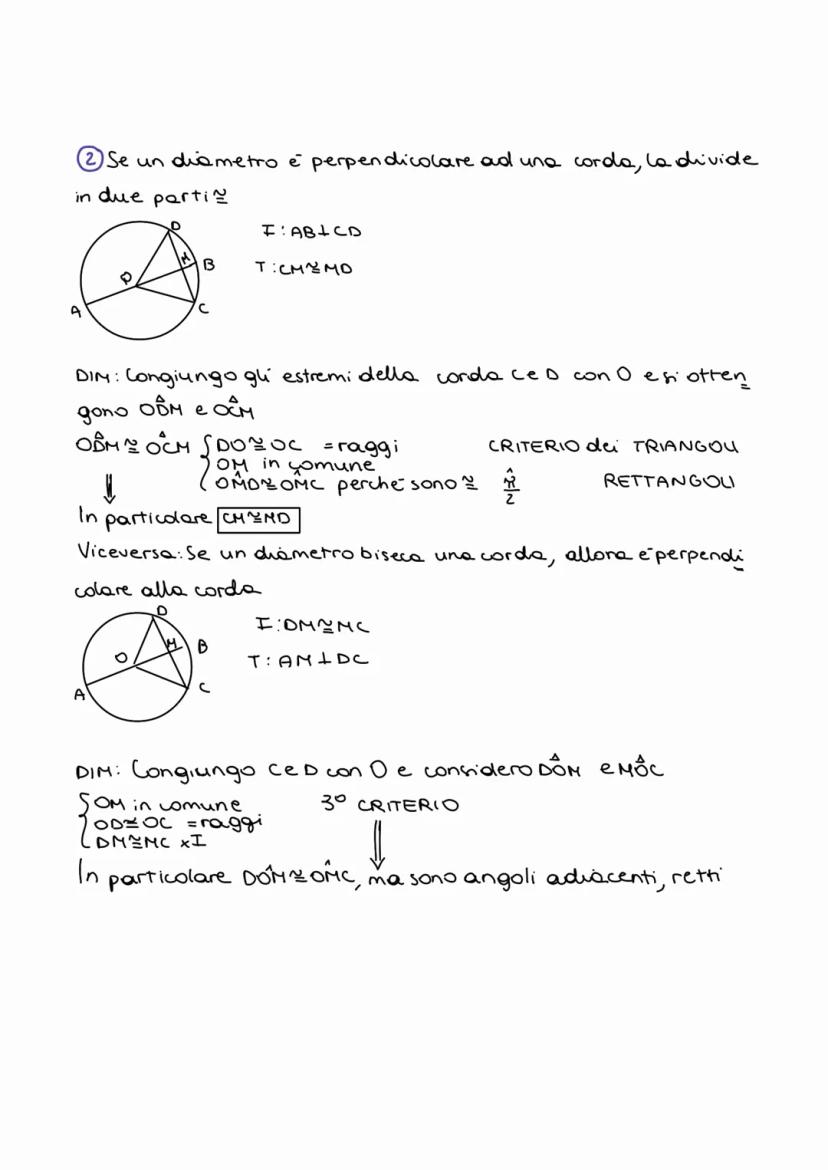 ② Se un diametro è perpendicolare ad una corda, la divide
in due parti ≅
D
M
B
O
A
C
I: AB⊥CD
T: CM≅MD
DIM: Congiungo gli estremi della corda C e D con O e si otten
gono OD̂M e OĈM
OD̂M ≅ OĈM { DO≅OC = raggi CRITERIO dei TRIANGOLI
OM in comune
OM̂D≅OM̂C perché sono ≅ π̂/2 RETTANGOLI
⇓
In particolare CM≅MD
Viceversa: Se un diametro biseca una corda, allora è perpendi
colare alla corda
D
M
B
O
A
C
I: DM≅MC
T: AM⊥DC
DIM: Congiungo C e D con O e considero DÔM e MÔC
{ OM in comune 3º CRITERIO
OD≅OC = raggi
DM≅MC x I
⇓
In particolare DÔM≅OM̂C, ma sono angoli adiacenti, retti